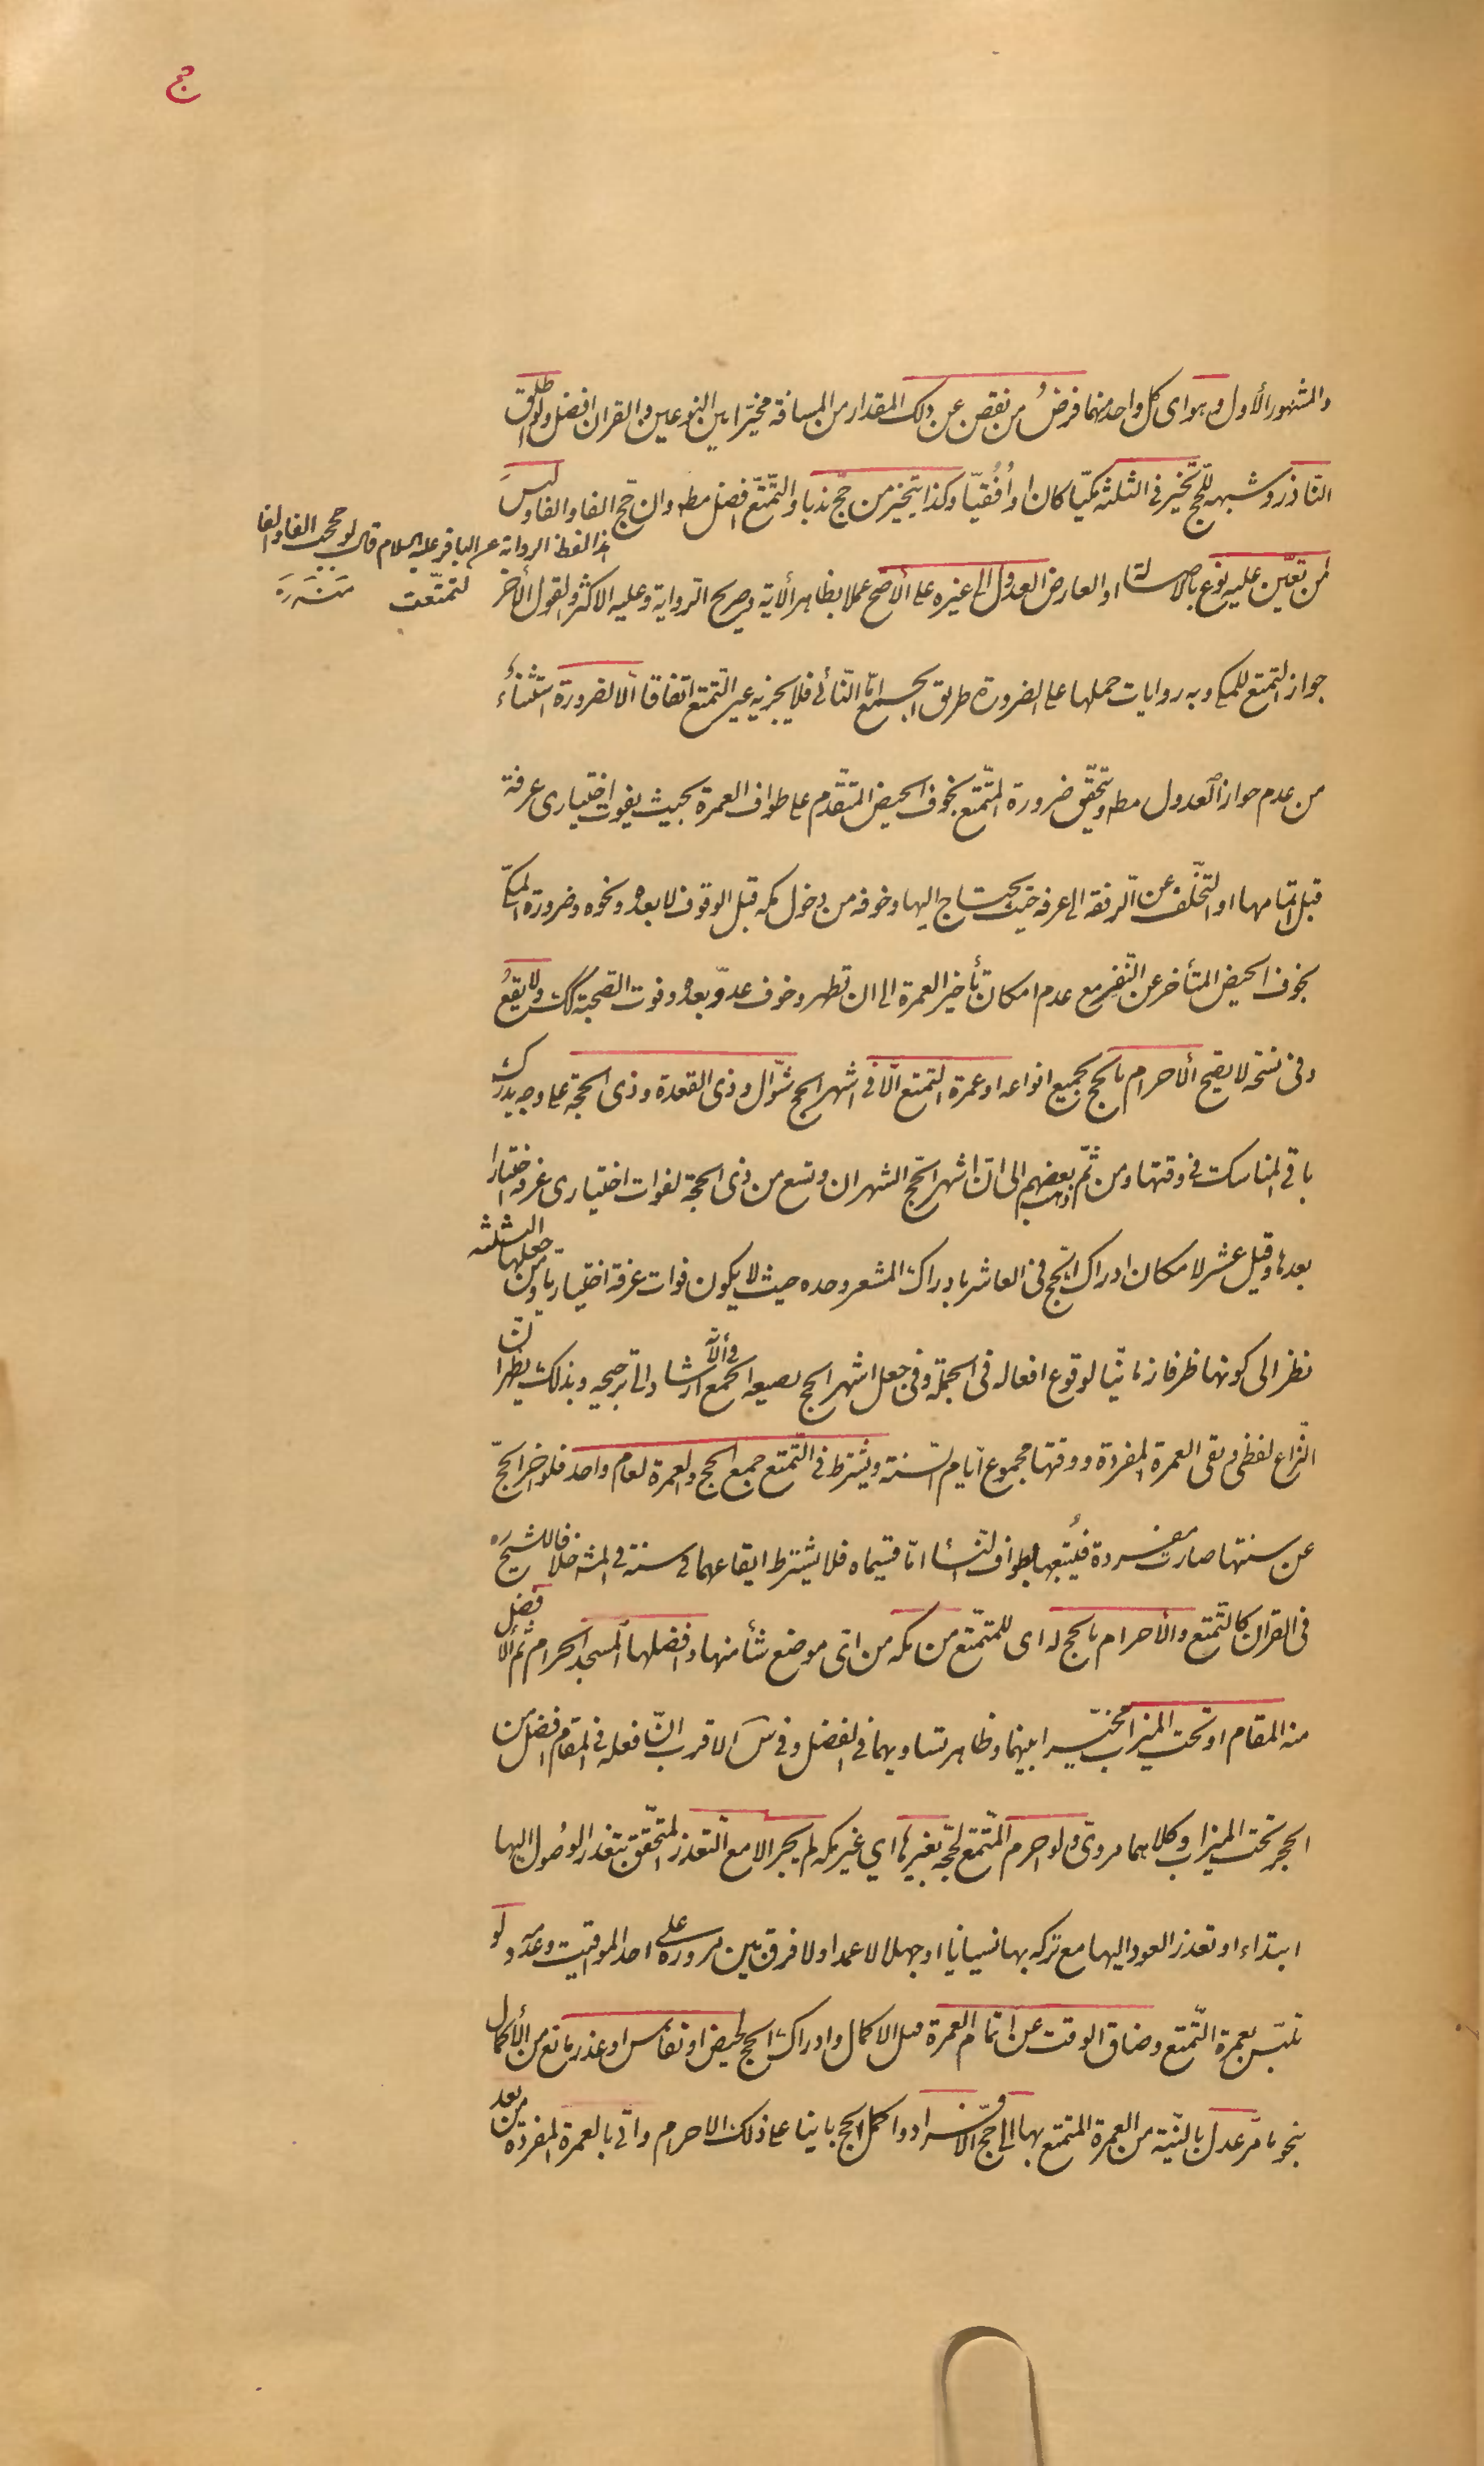 حج
والمشهور الأول وهو اى كل واحد منهما فرضُ من نقص عن ذلك المقدار من المسافة مخيّرا بين النوعين والقران افضل ولو اطلق
النّاذر وشبهه للحج تخيّر فى الثلثة مكيّا كان او أُفُقيّا وكذا يتخيّر من حجّ ندبا والتّمتّع افضل مط وان حجّ الفا والفا وليسَ
هذا لفظ الرواية عن الباقر عليه السلام قال لو حججت الفا والفا
لتمتّعت منه ره
لمن تعيّن عليه نوع بالاصالة او العارض العدول الى غيره على الأصح عملا بظاهر الأية وصريح الرواية وعليه الاكثر والقول الأخر
جواز التمتع للمكى وبه روايات حملها على الضرورة طريق الجمع امّا النّائى فلا يجزيه غير التمتع اتفاقا الا لضرورة استثناء
من عدم جواز العدول مط ويتحقّق ضرورة المتمتع بخوف الحيض المتقدّم على طواف العمرة بحيث يفوت اختيارى عرفة
قبل اتمامها او التخلّف عن الرفقة الى عرفه حيث يحتاج اليها وخوفه من دخول مكه قبل الوقوف لا بعده ونحوه وضرورة المكىّ
بخوف الحيض المتأخر عن النّفر مع عدم امكان تأخير العمرة الى ان تطهر وخوف عدوّ بعده وفوت الصحبة كك ولا يقعُ
وفى نسخة لا يصح الأحرام بالحج بجميع انواعه او عمرة التمتع الّا فى اشهر الحج شوّال وذى القعدة وذى الحجة على وجه يدرك
باقى المناسك فى وقتها ومن ثَمّ ذهب بعضهم الى انّ اشهر الحجّ الشهران وتسع من ذى الحجة لفوات اختيارى عرفة اختيارا
بعدها وقيل عشر لامكان ادراك الحج فى العاشر بادراك المشعر وحده حيث لا يكون فوات عرفة اختياريا ومن جعلها الثلثة
نظر الى كونها ظرفا زمانيّا لوقوع افعاله فى الجملة وفى جعل اشهر الحج بصيغه الجمع فى الأية ارشاد الى ترجيحه وبذلك يظهر انّ
النّزاع لفظى وبقى العمرة المفردة ووقتها مجموع ايّام السّنة ويشترط فى التّمتع جمع الحج والعمرة لعام واحد فلو اخّر الحجّ
عن سنتها صارت مفردة فيُتبعها بطواف النسأ امّا قسيماه فلا يشترط ايقاعهما فى سنة فى المش خلافا للشيخ ره
فى القران كالتمتع والأحرام بالحج له اى للمتمتّع من مكه من اىّ موضع شأ منها وافضلها المسجد الحرام ثم الأفضل
منه المقام او تحت الميزاب مخيّرا بينهما وظاهره تساويهما فى الفضل وفى س الاقرب انّ فعله فى المقام افضل من
الحجر تحت الميزاب وكلاهما مروىّ ولو احرم المتّمتع لحجّه بغيرها اي غير مكه لم يجز الا مع التّعذر المتحقّق بتعذر الوُصول اليها
ابتداء او تعذر العود اليها مع تركه بها نسيانا او جهلا لا عمدا ولا فرق بين مروره على احد المواقيت وعدمه ولو
تلبّس بعمرة التّمتع وضاق الوقت عن اتمام العمرة قبل الاكمال وادراك الحج لحيض او نفاس او عذر مانع من الأكمال
بنحو ما مرّ عدل بالنّية من العمرة المتمتع بها الى حجّ الأفراد واكمل الحج بانيا على ذلك الاحرام واتى بالعمرة المفردة من بعد